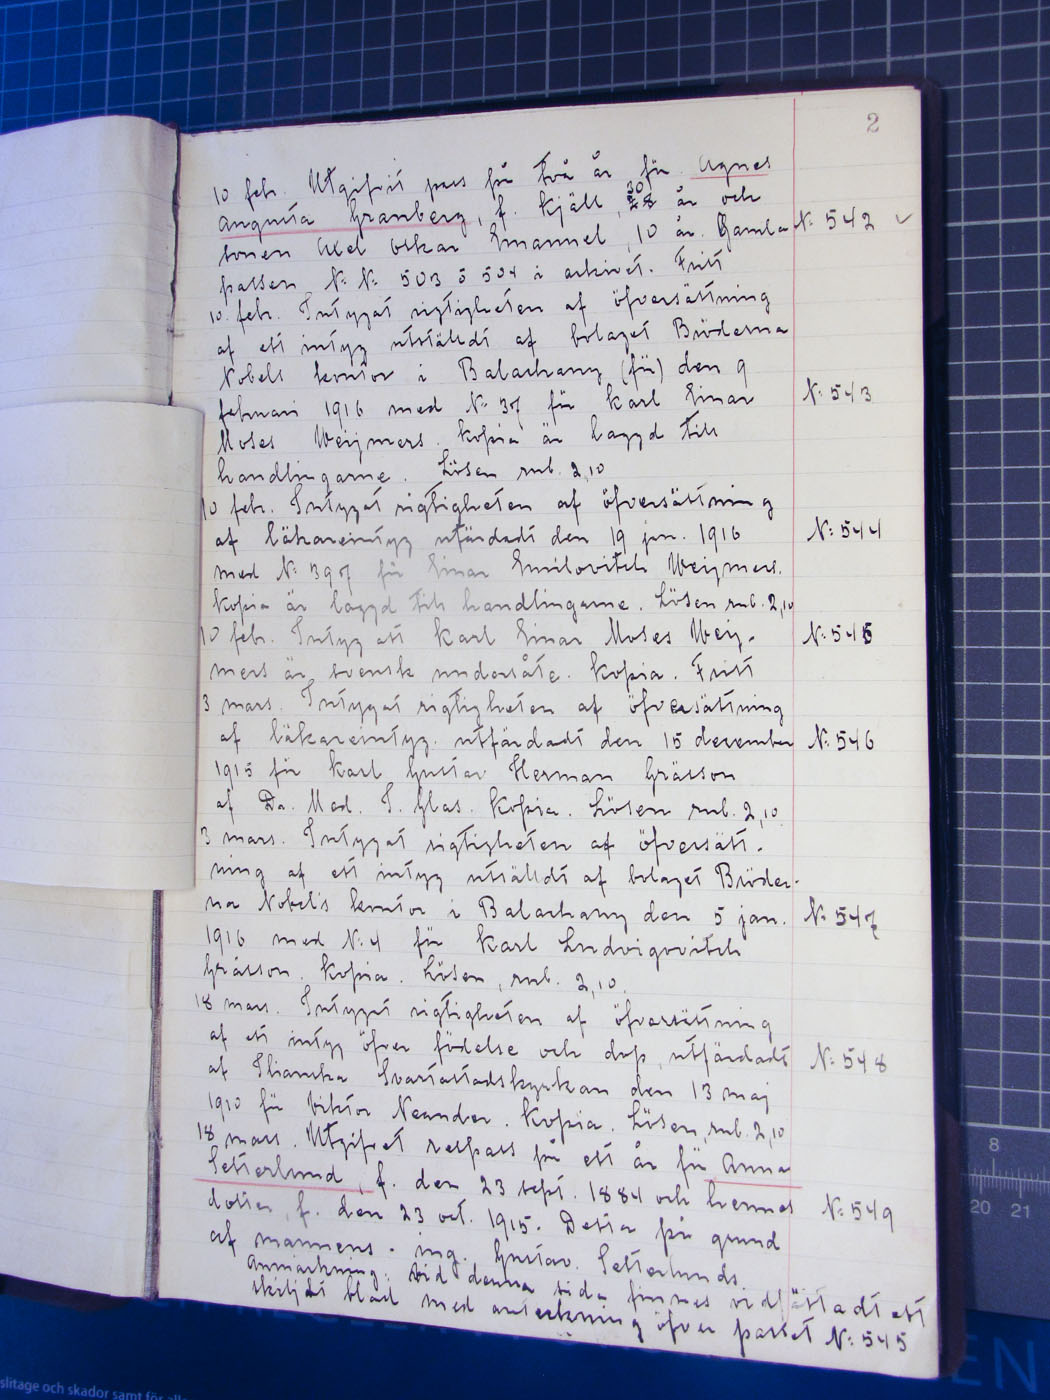 2
10 febr. Utgifvit pass på två år för Agnes
Augusta Granberg, f. Kjäll, 30 28 år och
sonen Axel Oskar Emanuel, 10 år. Gamla N: 542 ✓
passen N: N: 503 o 504 i arkivet. Fritt
10 febr. Intygat rigtigheten af öfversättning
af ett intyg utställdt af bolaget Bröderna
Nobels kontor i Balachany (för) den 9
februari 1916 med N: 37 för Karl Einar N: 543
Moses Weijmers. Kopia är lagd till
handlingarne. Lösen rub. 2,10
10 febr. Intygat rigtigheten af öfversättning
af läkareintyg utfärdadt den 19 jan. 1916 N: 544
med N: 397 för Einar Emilovitch Weijmers.
Kopia är lagd till handlingarne. Lösen rub. 2,10
10 febr. Intyg att Karl Einar Moses Weij- N: 545
mers är svensk undersåte. Kopia. Fritt
3 mars. Intygat rigtigheten af öfversättning
af läkareintyg utfärdadt den 15 december N: 546
1915 för Karl Gustav Herman Gråsson
af Dr. Med. I. Glas. Kopia. Lösen rub. 2,10
3 mars. Intygat rigtigheten af öfversätt-
ning af ett intyg utställdt af bolaget Bröder-
na Nobels kontor i Balachany den 5 jan. N: 547
1916 med N: 4 för Karl Ludvigovitch
Gråsson. Kopia. Lösen, rub. 2,10.
18 mars. Intygat rigtigheten af öfversättning
af ett intyg öfver födelse och dop, utfärdadt N: 548
af Slianska Svartastadskyrkan den 13 maj
1910 för Viktor Neander. Kopia. Lösen, rub. 2,10
18 mars. Utgifvet respass på ett år för Anna
Setterlund, f. den 23 sept. 1884 och hennes N: 549
dotter, f. den 23 oct. 1915. Detta på grund
af mannens - ing. Gustav Setterlunds.
Anmärkning. Vid denna sida finnes vidfästadt ett
skiljdt blad med anteckning öfver passet N: 545
8
20 21
slitage och skador samt för
EN